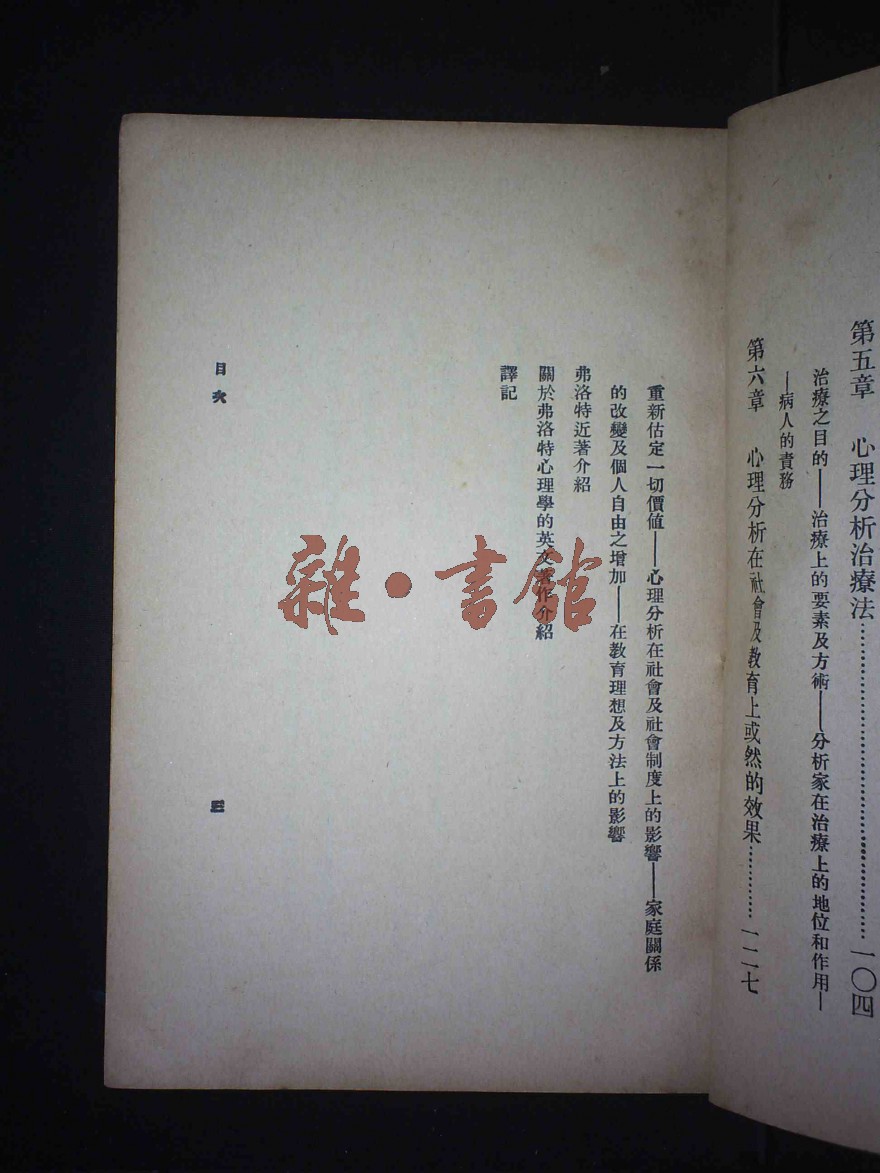 第五章　心理分析治療法……………………………一〇四
治療之目的——治療上的要素及方術——分析家在治療上的地位和作用—
—病人的責務
第六章　心理分析在社會及教育上或然的效果…………一二七
重新估定一切價值——心理分析在社會及社會制度上的影響——家庭關係
的改變及個人自由之增加——在教育理想及方法上的影響
弗洛特近著介紹
關於弗洛特心理學的英文著作介紹
譯記
目次
三
雜·書館